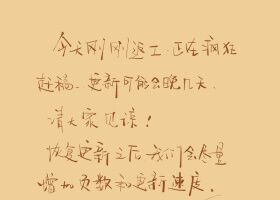 今天刚刚返工,正在疯狂
赶稿、更新可能会晚几天,
请大家见谅!
恢复更新之后我们会尽量
增加页数和更新速度。